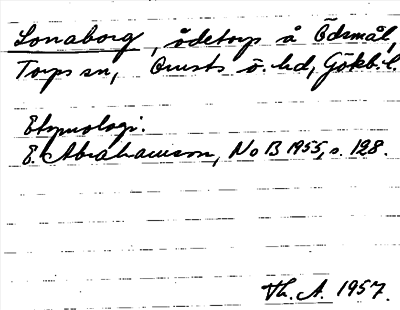 Lonaborg, ödetorp å Ödsmål,
Torps sn, Orusts ö. hd, Gökb. l.
Etymologi.
E. Abrahamson, NoB 1955, s. 128.
Th. A. 1957.